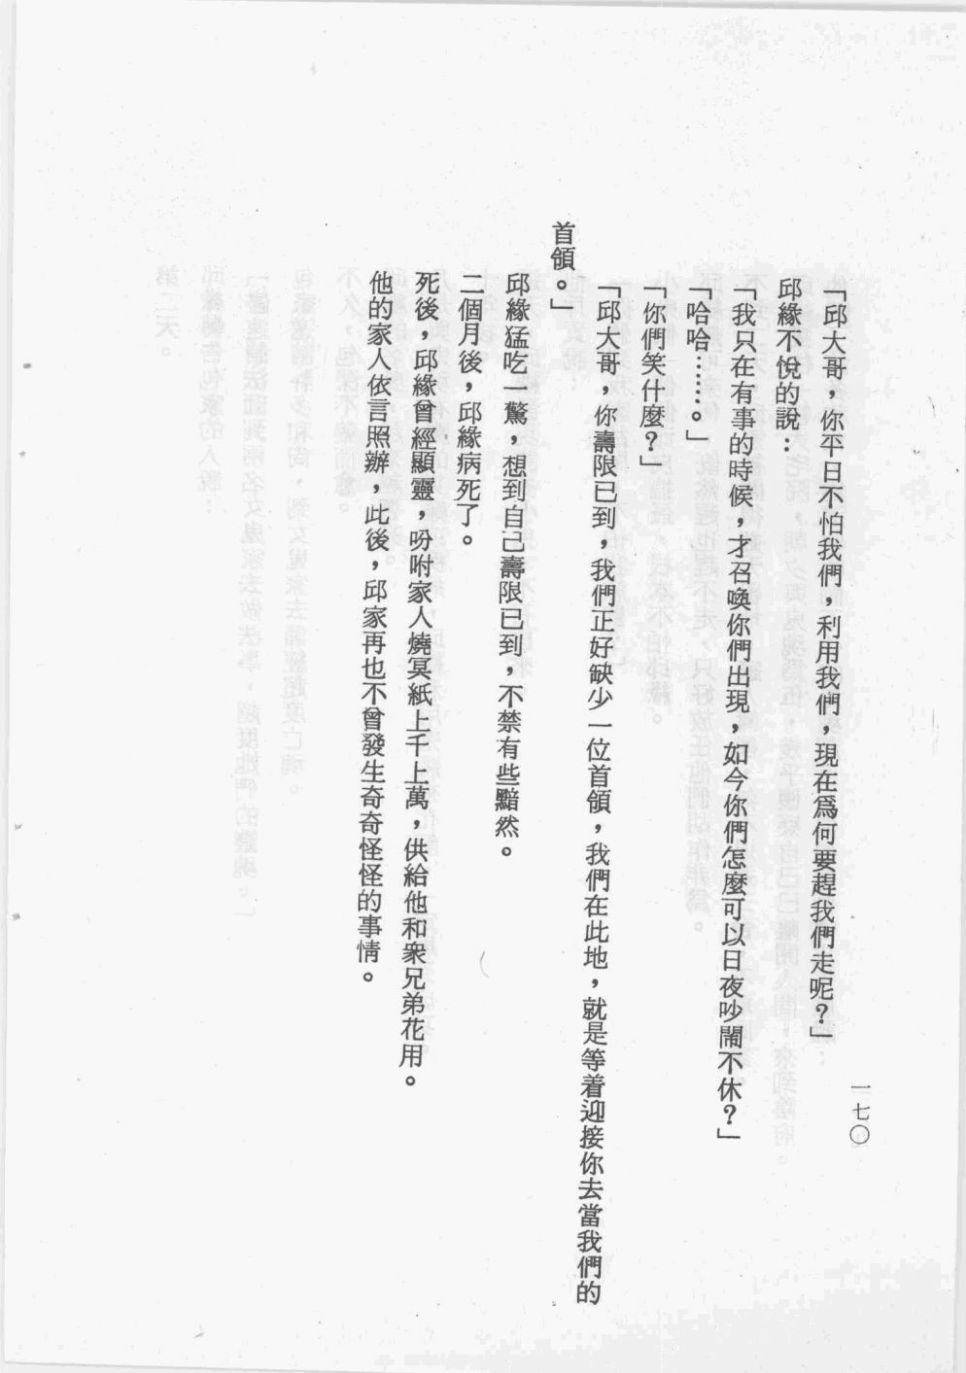 「邱大哥，你平日不怕我們，利用我們，現在爲何要趕我們走呢？」
邱緣不悅的說：
「我只在有事的時候，才召喚你們出現，如今你們怎麼可以日夜吵鬧不休？」
「哈哈……。」
「你們笑什麼？」
「邱大哥，你壽限已到，我們正好缺少一位首領，我們在此地，就是等着迎接你去當我們的
首領。」
邱緣猛吃一驚，想到自己壽限已到，不禁有些黯然。
二個月後，邱緣病死了。
死後，邱緣曾經顯靈，吩咐家人燒冥紙上千上萬，供給他和衆兄弟花用。
他的家人依言照辦，此後，邱家再也不曾發生奇奇怪怪的事情。
一七〇